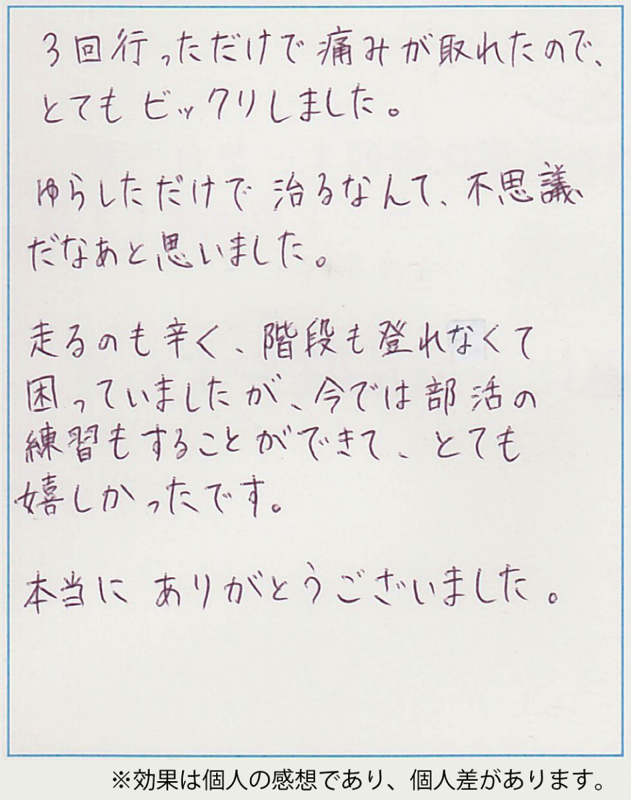 3回行っただけで痛みが取れたので、
とてもビックリしました。
ゆらしただけで治るなんて、不思議
だなあと思いました。
走るのも辛く、階段も登れなくて
困っていましたが、今では部活の
練習もすることができて、とても
嬉しかったです。
本当にありがとうございました。
※効果は個人の感想であり、個人差があります。